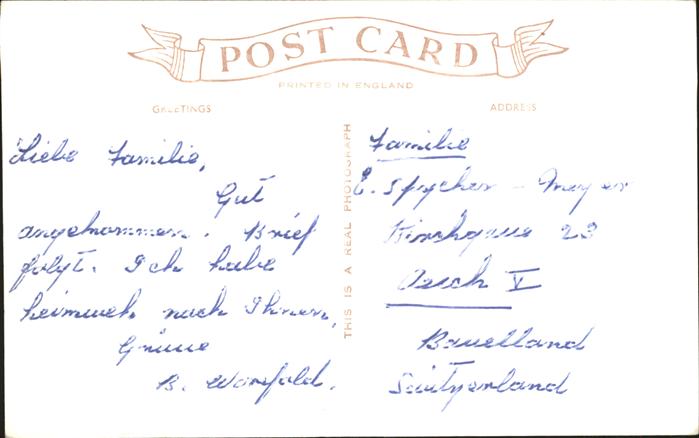 POST CARD
PRINTED IN ENGLAND
GREETINGS
ADDRESS
Liebe Familie,
Gut
angekommen. Brief
folgt. Ich habe
heimweh nach Ihnen,
Grüsse
B. Worsfold.
THIS IS A REAL PHOTOGRAPH
Familie
E. Spycher - Meyer
23
Aesch
Baselland
Switzerland